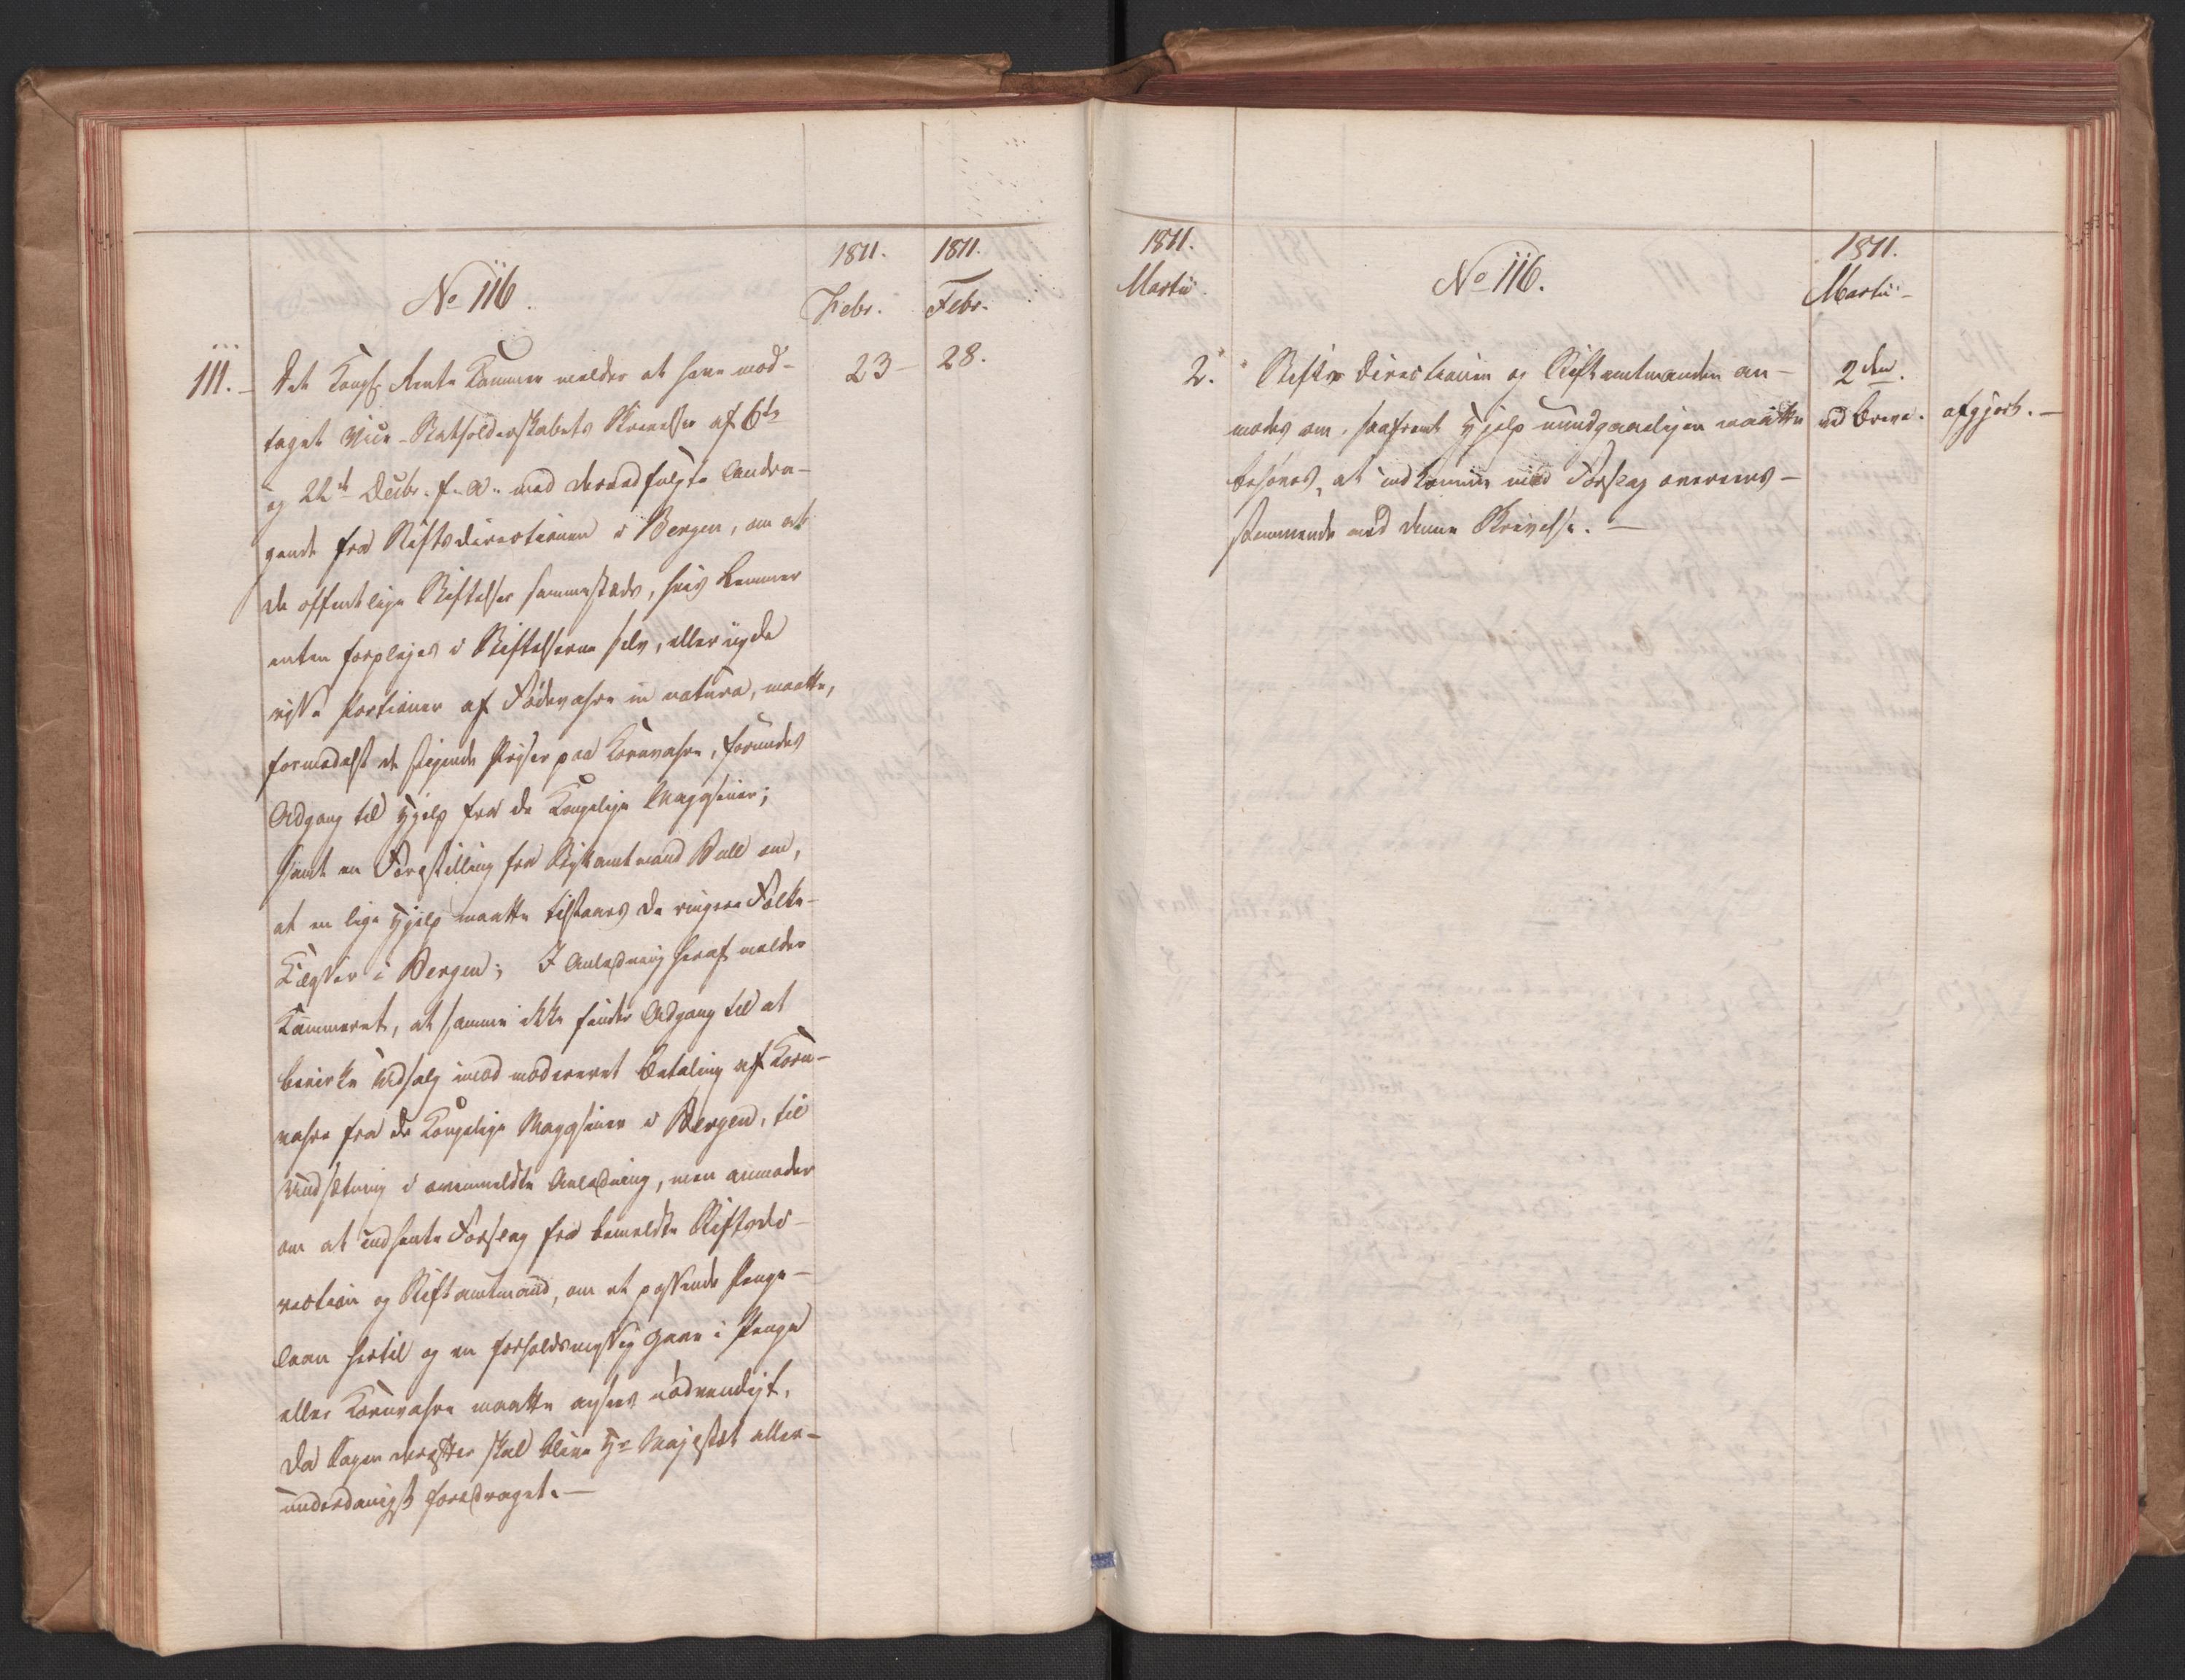 1811.
1811.
No 116.
Febr.
Febr.
111.
Det Kongl: Rente Kammer melder at have mod-
23
28.
taget Vice-Statholderskabets Skrivelser af 6te
og 22d Decbr. f. A. med derved fulgte Andra-
gende fra Stiftsdirectionen i Bergen, om at
de offentlige Stiftelser sammesteds, hvis Lemmer
enten forplejes i Stiftelserne selv, eller nyde
visse Portioner af Fødevahre in natura, maatte,
formedelst de stigende Priser paa Kornvahre, forundes
Adgang til Hjelp fra de Kongelige Magasiner;
samt en Forestilling fra Stiftamtmand Bull om,
at en lige Hjelp maatte tilstaaes de ringere Folke-
Klasser i Bergen; I Anledning heraf melder
Kammeret, at samme ikke finder Adgang til at
bevirke Udsalg imod modereret Betaling af Korn-
vahre fra de Kongelige Magasiner i Bergen, til
Undsætning i ovenmeldte Anledning, men anmoder
om at indhente Forslag fra bemeldte Stiftsdi-
rection og Stiftamtmand, om et passende Penge-
laan hertil og en forholdsmessig Gave i Penge
eller Kornvahre maatte ansees nødvendigt,
da Sagen derefter skal blive Hs Majestæt aller-
underdanigst foredraget.
1811.
1811.
Martii
No 116.
Martii
2.
Stifts Directionen og Stiftamtmanden an-
2den
modes om, saafremt Hjelp uundgaaeligen maatte
ved Breve.
afgjort.
behøves, at indkomme med Forslag overeens-
stemmende med denne Skrivelse.